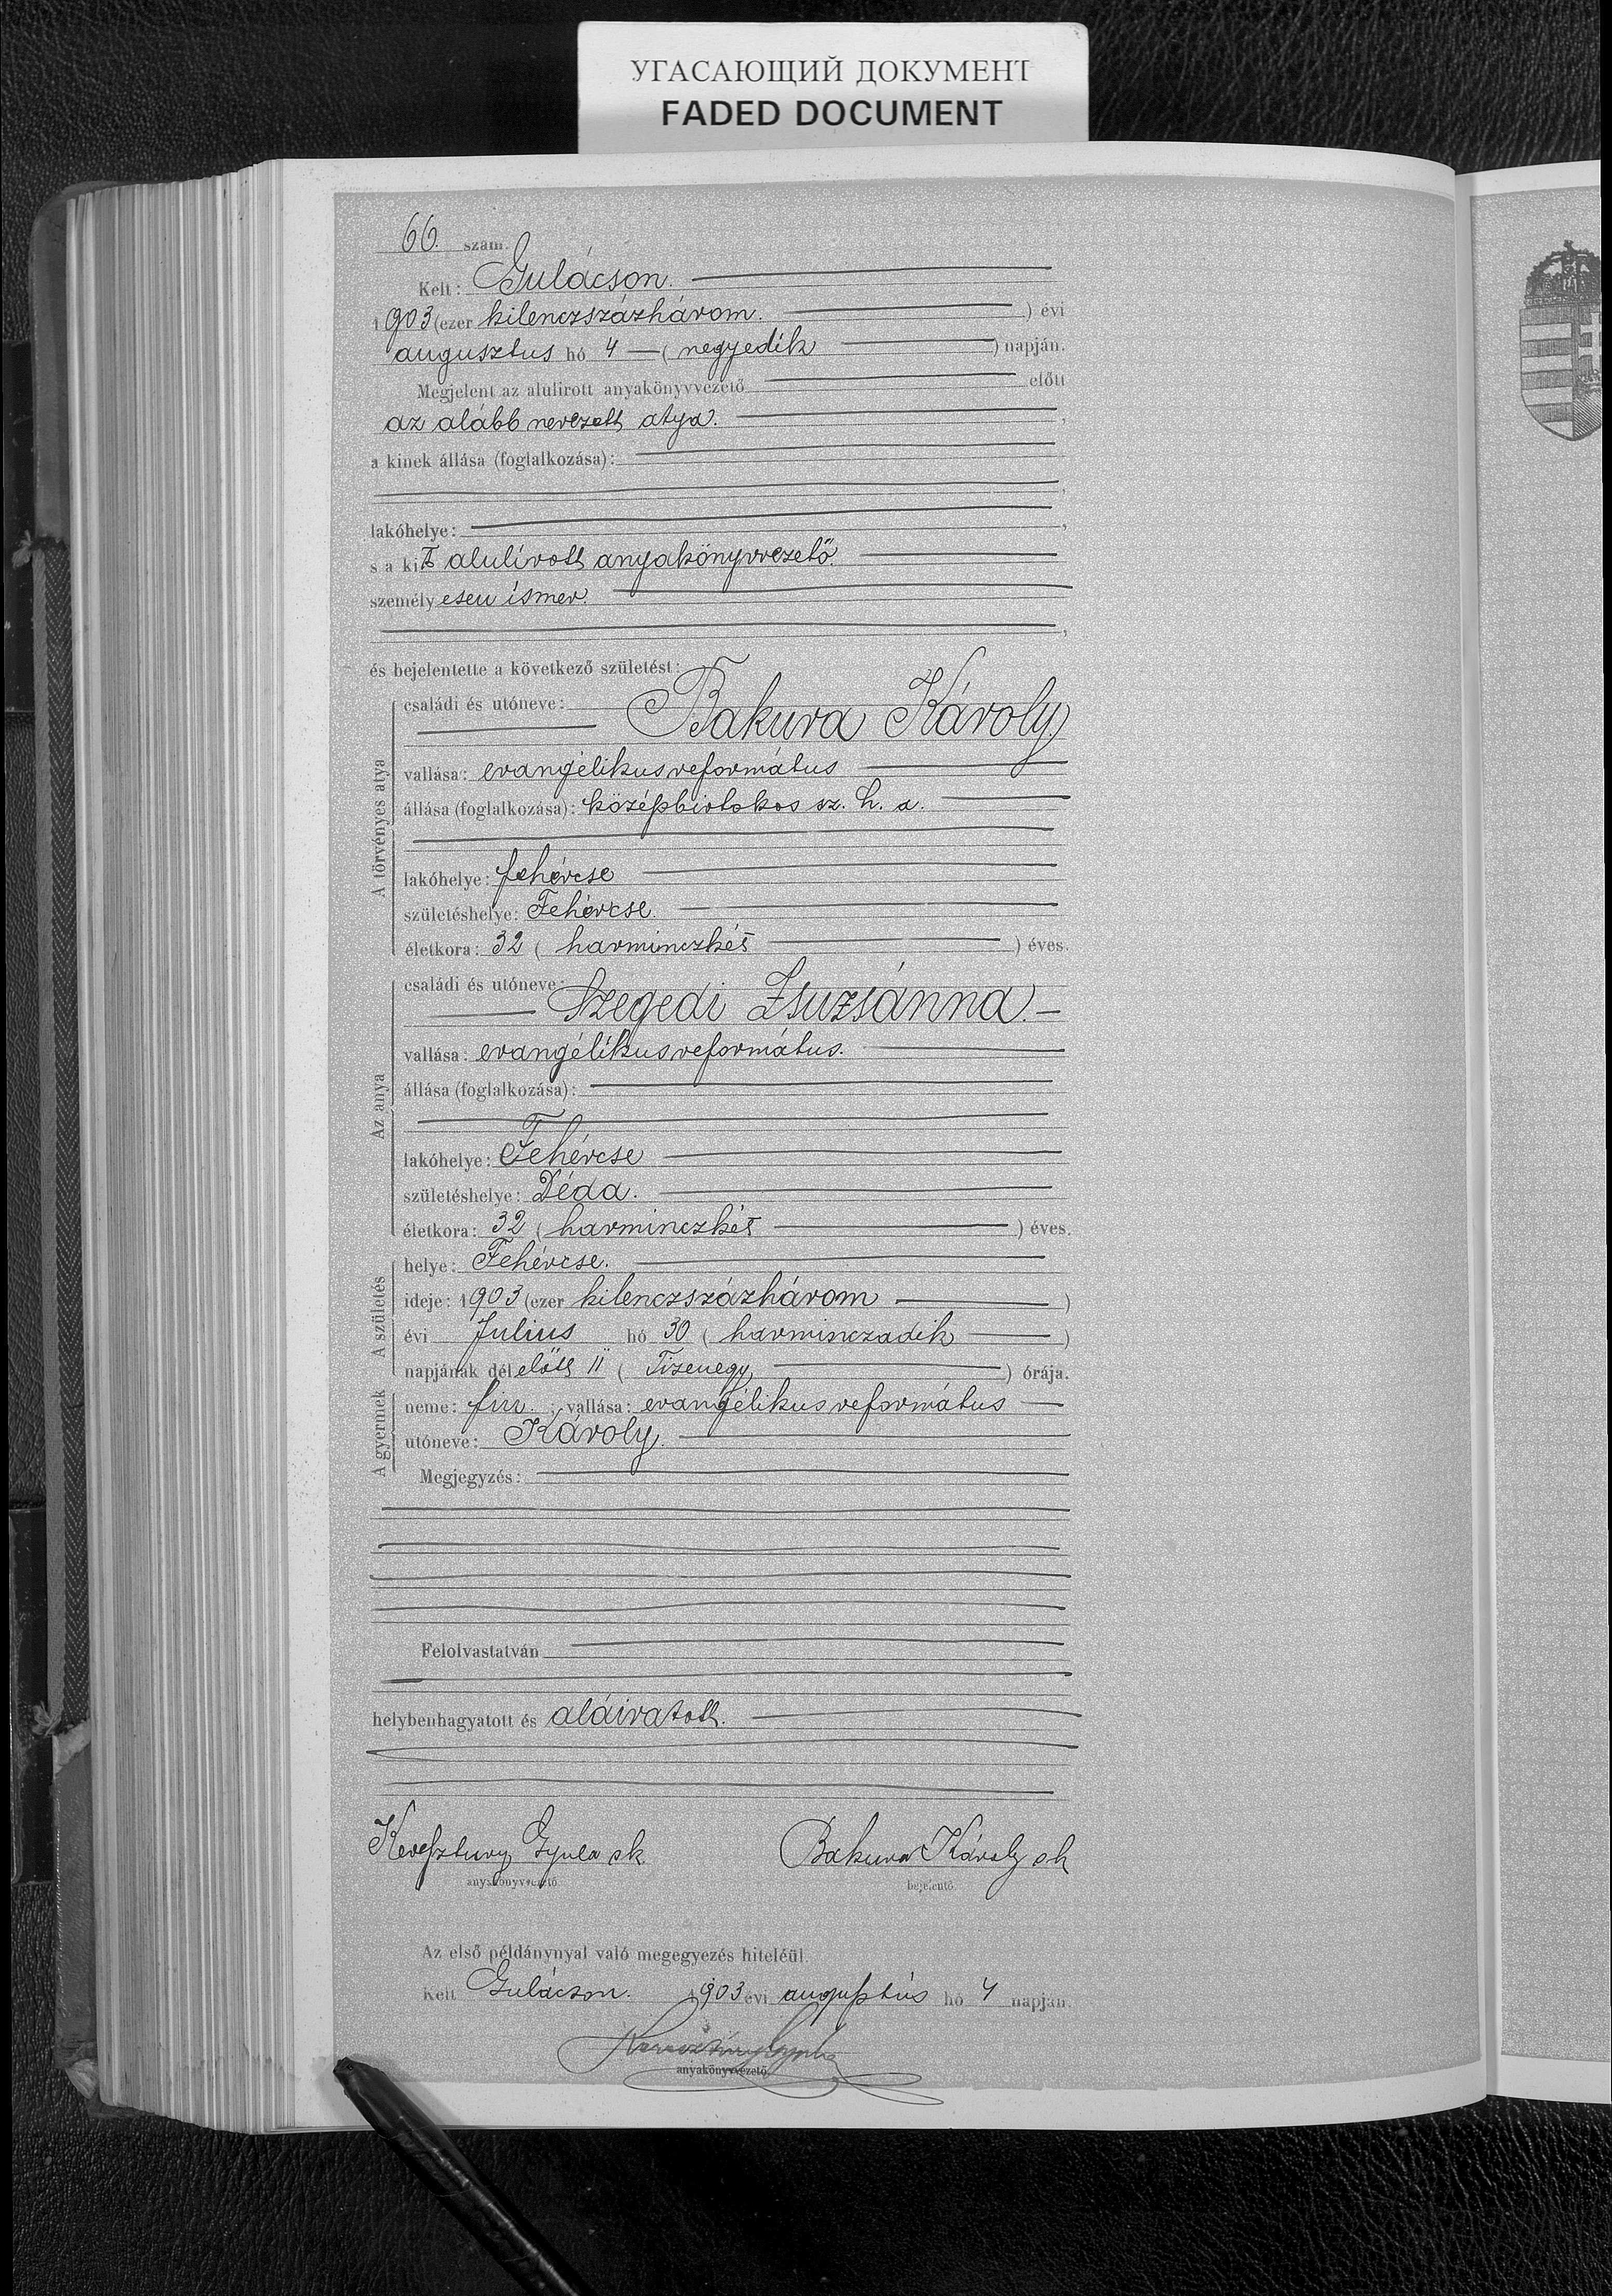 УГАСАЮЩИЙ ДОКУМЕНТ
FADED DOCUMENT
66. szám.
Kelt: Gulácson.
1903 (ezer kilenczszázhárom. ) évi
augusztus hó 4 (negyedik ) napján.
Megjelent az alulirott anyakönyvvezető előtt
az alább nevezett atya. ,
a kinek állása (foglalkozása):
,
lakóhelye: ,
s a kit alulírott anyakönyvvezető.
személyesen ísmer.
,
és bejelentette a következő születést:
A törvényes atya
családi és utóneve:
Bakura Károly
vallása: evangélikus református
állása (foglalkozása): középbirtokos sz. h. a.
lakóhelye: fehércse
születéshelye: Fehércse.
életkora: 32 (harminczkét ) éves.
Az anya
családi és utóneve:
Szegedi Zsuzsánna.
vallása: evangélikus református.
állása (foglalkozása):
lakóhelye: Fehércse
születéshelye: Déda.
életkora: 32 (harminczkét ) éves.
A születés
helye: Fehércse.
ideje: 1903 (ezer kilenczszázhárom )
évi Julius hó 30 (harminczadik )
napjának dél előtt 11 (Tizenegy ) órája.
A gyermek
neme: fiu. ; vallása: evangélikus református
utóneve: Károly.
Megjegyzés:
Felolvastatván
helybenhagyatott és aláiratott.
Keresztury Gyula sk Bakura Károly sk
anyakönyvvezető. bejelentő.
Az első példánynyal való megegyezés hiteléül.
Kelt Gulácson. 1903 évi augusztús hó 4 napján.
Keresztury Gyula
anyakönyvvezető.